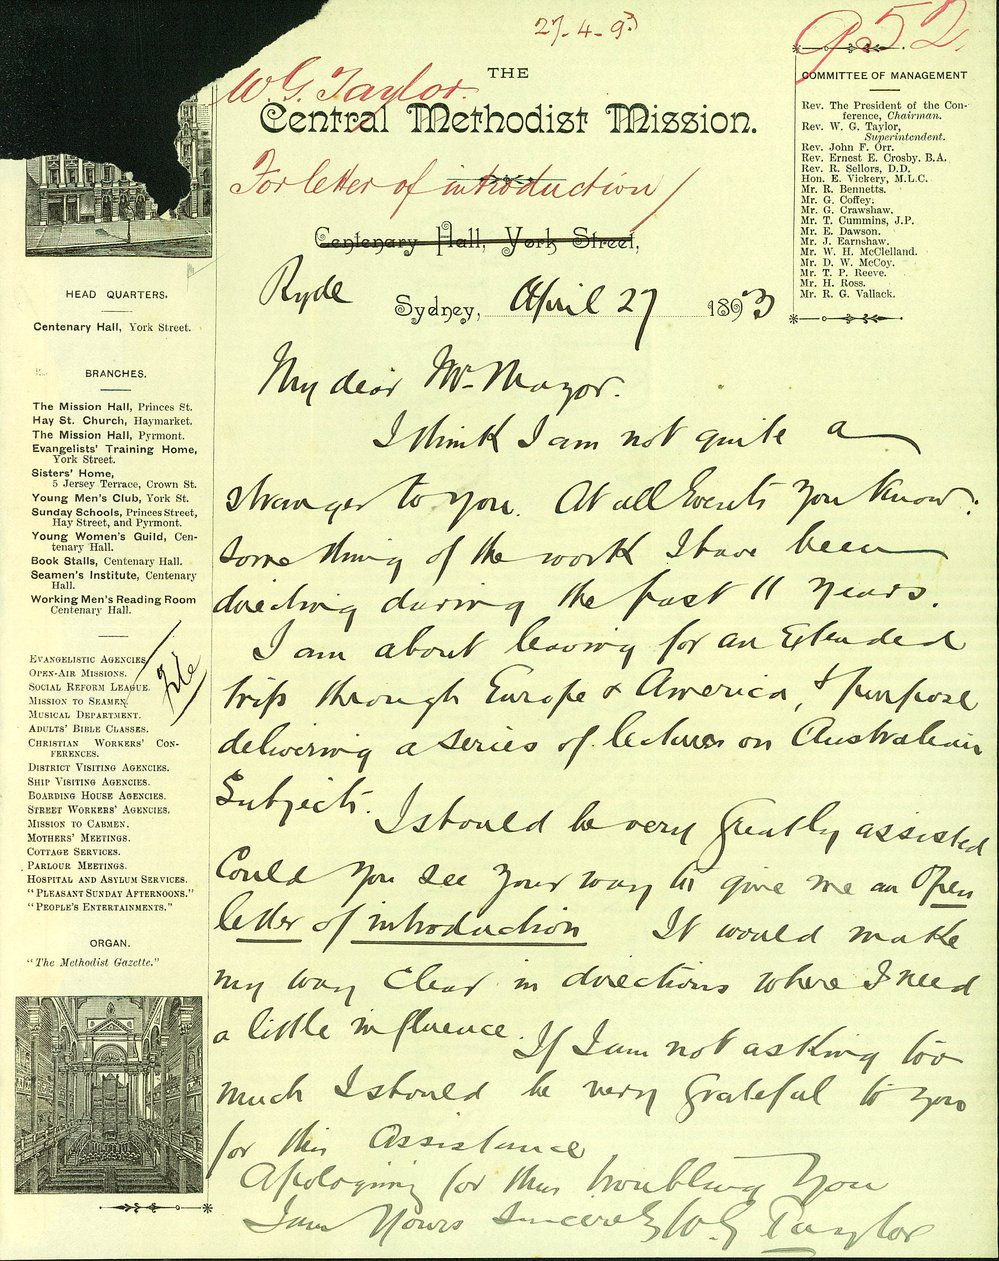 27-4-93
952
W G. Taylor.
THE
Central Methodist Mission.
For letter of introduction /
Centenary Hall, York Street,
Ryde
Sydney, April 27 1893
COMMITTEE OF MANAGEMENT
Rev. The President of the Con-
ference, Chairman.
Rev. W. G. Taylor,
Superintendent.
Rev. John F. Orr.
Rev. Ernest E. Crosby, B.A.
Rev. R. Sellors, D.D.
Hon. E. Vickery, M.L.C.
Mr. R. Bennetts.
Mr. G. Coffey.
Mr. G. Crawshaw.
Mr. T. Cummins, J.P.
Mr. E. Dawson.
Mr. J. Earnshaw.
Mr. W. H. McClelland.
Mr. D. W. McCoy.
Mr. T. P. Reeve.
Mr. H. Ross.
Mr. R. G. Vallack.
HEAD QUARTERS.
Centenary Hall, York Street.
BRANCHES.
The Mission Hall, Princes St.
Hay St. Church, Haymarket.
The Mission Hall, Pyrmont.
Evangelists' Training Home,
York Street.
Sisters' Home,
5 Jersey Terrace, Crown St.
Young Men's Club, York St.
Sunday Schools, Princes Street,
Hay Street, and Pyrmont.
Young Women's Guild, Cen-
tenary Hall.
Book Stalls, Centenary Hall.
Seamen's Institute, Centenary
Hall.
Working Men's Reading Room
Centenary Hall.
EVANGELISTIC AGENCIES.
OPEN-AIR MISSIONS.
SOCIAL REFORM LEAGUE.
MISSION TO SEAMEN.
MUSICAL DEPARTMENT.
ADULTS' BIBLE CLASSES.
CHRISTIAN WORKERS' CON-
FERENCES.
DISTRICT VISITING AGENCIES.
SHIP VISITING AGENCIES.
BOARDING HOUSE AGENCIES.
STREET WORKERS' AGENCIES.
MISSION TO CABMEN.
MOTHERS' MEETINGS.
COTTAGE SERVICES.
PARLOUR MEETINGS.
HOSPITAL AND ASYLUM SERVICES.
"PLEASANT SUNDAY AFTERNOONS."
"PEOPLE'S ENTERTAINMENTS."
File
ORGAN.
"The Methodist Gazette."
My dear Mr Mayor.
I think I am not quite a
stranger to you. At all Events you know
something of the work I have been
directing during the past 11 years.
I am about leaving for an Extended
trip through Europe & America, & purpose
delivering a series of lectures on Australian
Subjects.
I should be very greatly assisted
Could you see your way to give me an open
letter of introduction It would make
my way clear in directions where I need
a little influence.
If I am not asking too
much I should be very grateful to you
for this assistance
Apologising for thus troubling you
I am Yours Sincerely W. G Taylor